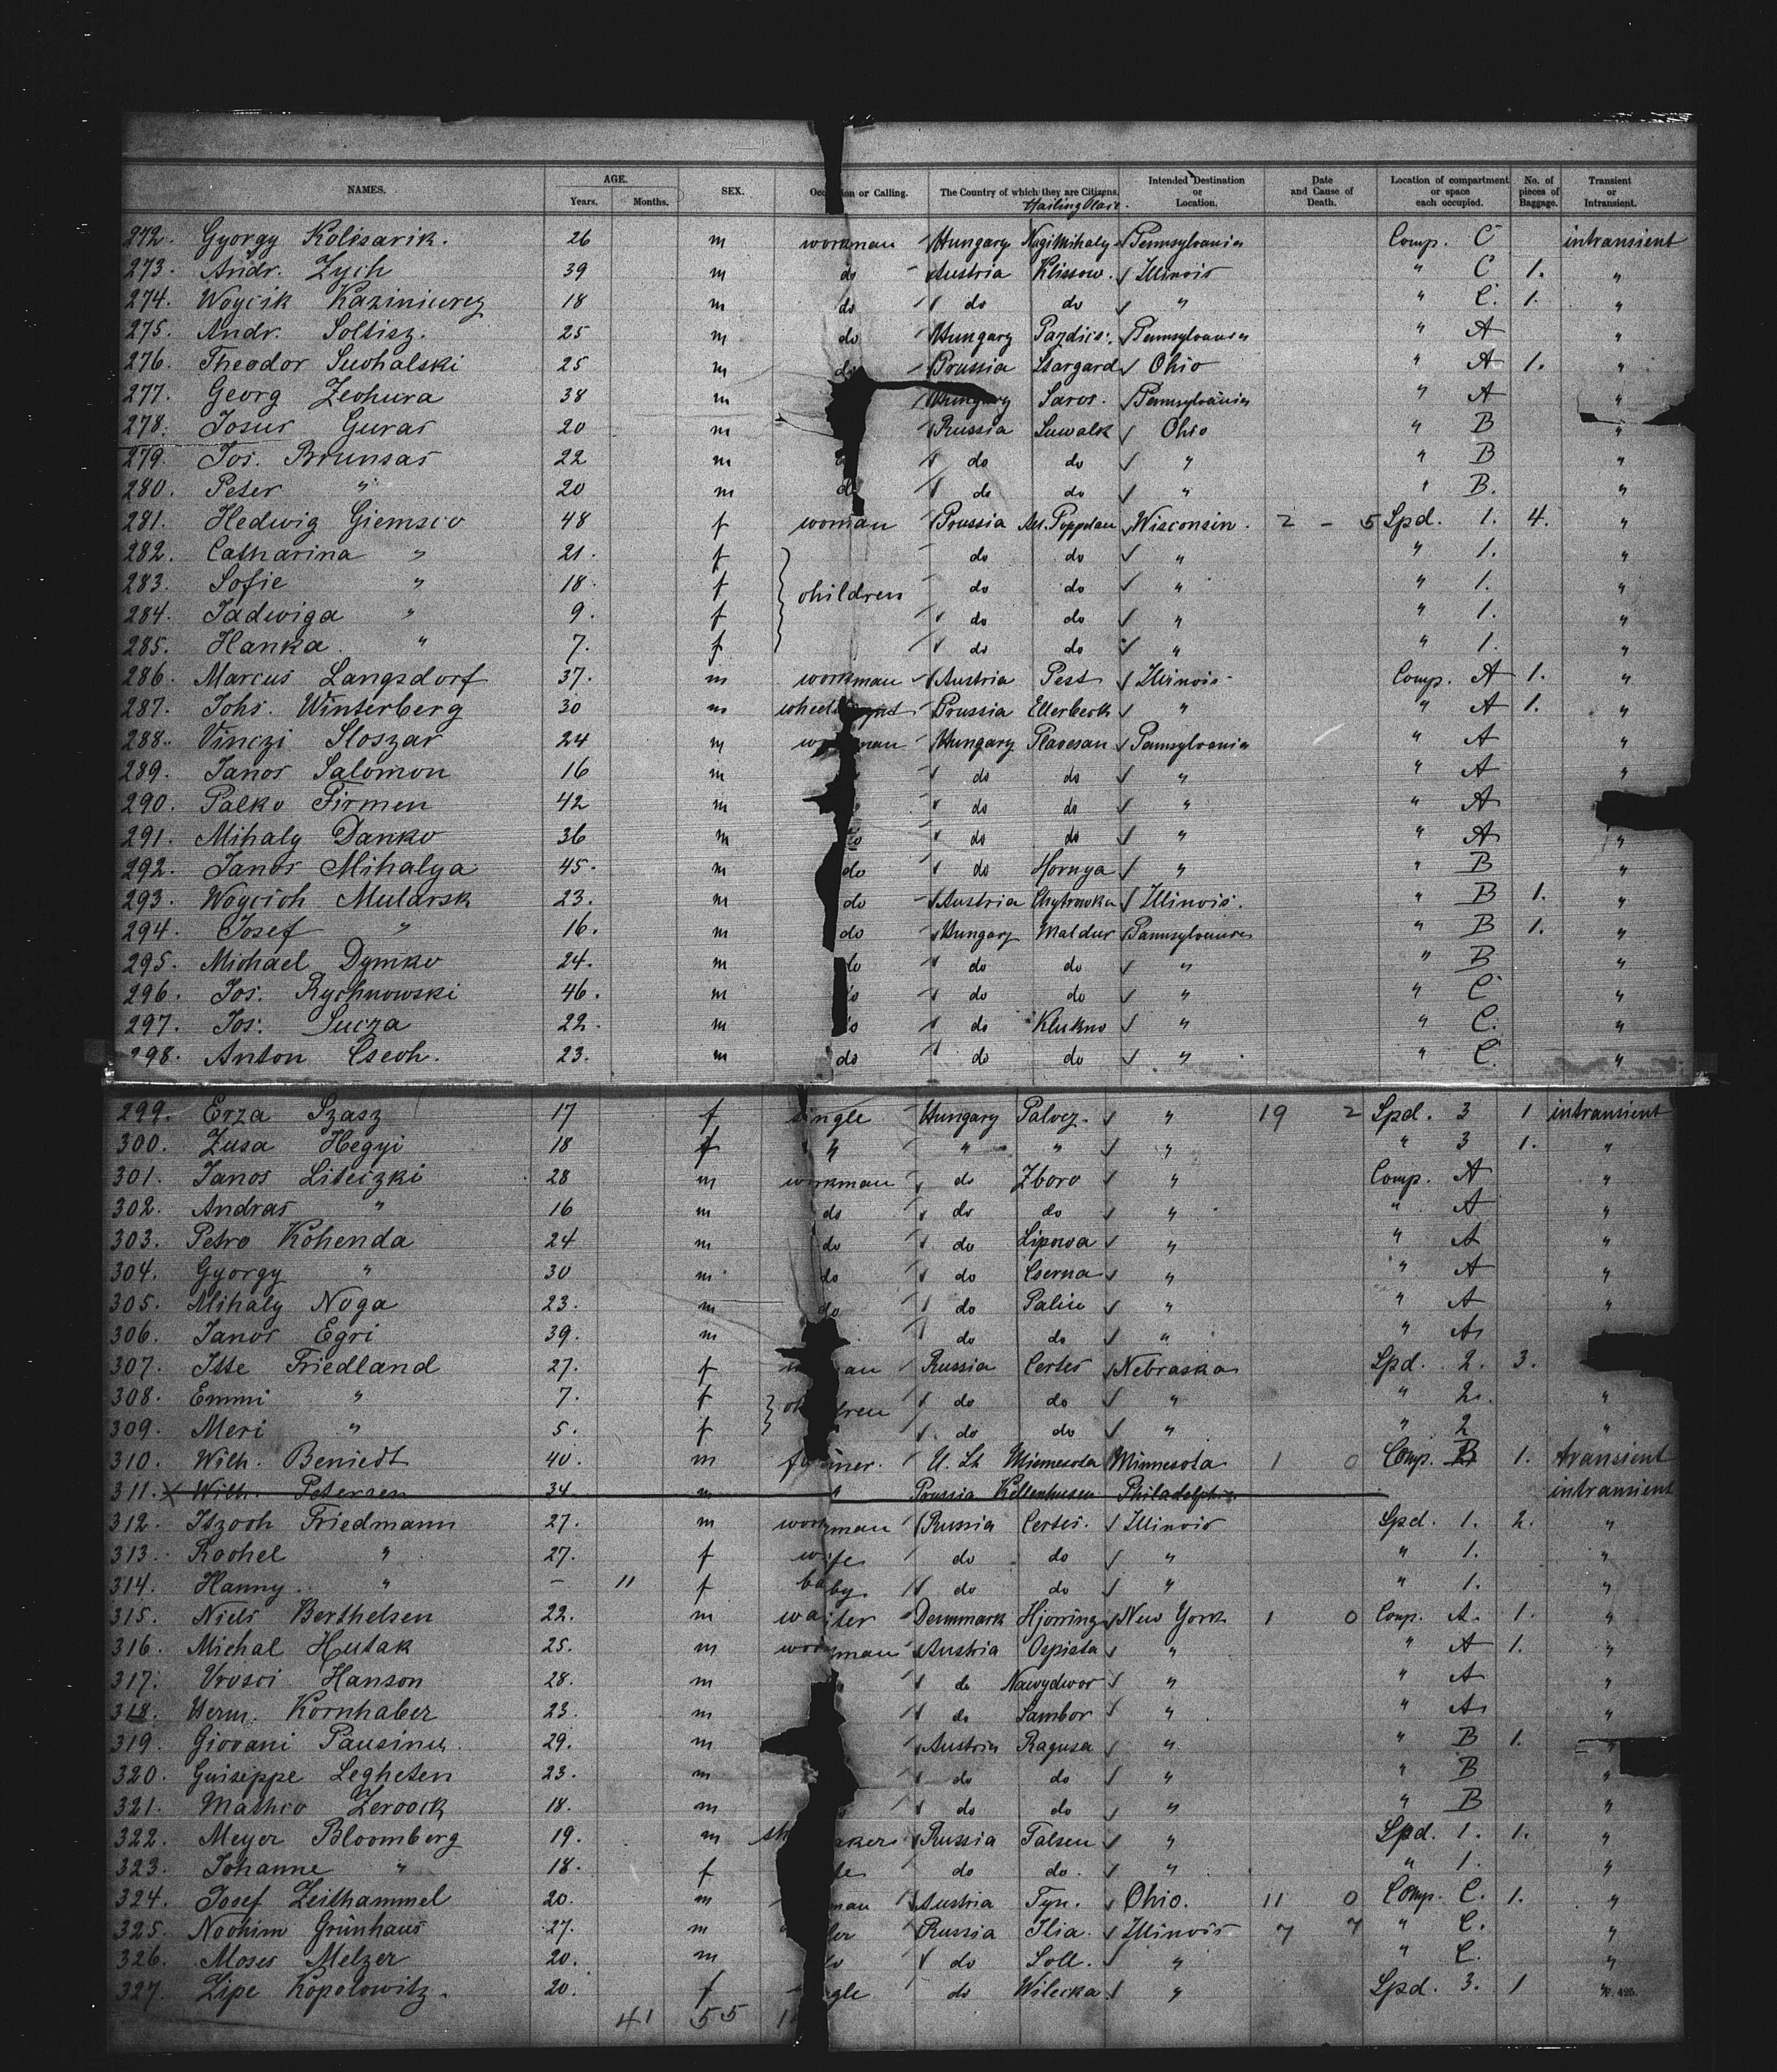 NAMES. AGE. Years. Months. SEX. Occ ion or Calling. The Country of which they are Citizens. Hailing Place. Intended Destination or Location. Date and Cause of Death. Location of compartment or space each occupied. No. of pieces of Baggage. Transient or Intransient.
272. Gyorgy Kolisarik. 26 m workman Hungary NagiMihaly Pennsylvania Comp. C intransient
273. Andr. Zych 39 m do Austria Klissow. Illinois " C 1. "
274. Woycik 18 m do do do " " C. 1. "
275. Andr. Soltisz. 25 m do Hungary Pazdics. Pennsylvania " A "
276. Theodor Suchalski 25 m do Prussia Stargard Ohio " A 1. "
277. Georg Zechura 38 m Hungary Saros. Pennsylvania " A "
278. Josus Guras 20 m Russia Suwalk Ohio " B "
279. Jos. Brunsas 22 m do do " " B "
280. Peter " 20 m do do do " " B. "
281. Hedwig Giemsco 48 f woman Prussia Alt. Poppelau Wisconsin. 2 - 5 Spd. 1. 4. "
282. Catharina " 21. f do do " " 1. "
283. Sofie " 18. f children do do " " 1. "
284. Jadwiga " 9. f do do " " 1. "
285. Hanka. " 7. f do do " " 1. "
286. Marcus Langsdorf 37. m workman Austria Pest Illinois Comp. A 1. "
287. Johs. Winterberg 30 m Prussia Ellerbeck " " A 1. "
288. Vinczi Sloszar 24 m wo man Hungary Plavesan Pannsylvania " A "
289. Janos Salomon 16 m do do " " A "
290. Palko Firmen 42 m do do " " A
291. Mihaly Danko 36 m do do do " " A "
292. Janos Mihalya 45. m do do Hornya " " B "
293. Woycich Mularsk 23. m do Austria Chytrowka Illinois. " B 1. "
294. Josef " 16. m do Hungary Maldur Pannsylvania " B 1. "
295. Michael Dymko 24. m do do do " " B "
296. Jos. Rychnowski 46. m do do do " " C "
297. Jos. Sucza 22. m do do Klukno " " C. "
298. Anton Csech. 23. m do do do " " C. "
299. Erza Szasz 17 f single Hungary Palvez. " 19 2 Spd. 3 1 intransient
300. Zusa Hegyi 18 f " " " " " 3 1. "
301. Janos Liteczki 28 m workman do Zboro " Comp. A "
302. Andras " 16 m do do do " " A "
303. Petro Kohenda 24 m do do Lipowa " " A "
304. Gyorgy " 30 m do do Cserna " " A "
305. Mihaly Noga 23. m do do Palin " " A "
306. Janos Egri 39. m do do " " A
307. Itte Friedland 27. f w an Russia Certes Nebraska Spd. 2. 3.
308. Emmi " 7. f ch dren do do " " 2. "
309. Meri " 5. f do do " " 2 "
310. Wilh. Beniedt 40. m farmer. U. St. Minnesota Minnesota 1 0 Comp. B 1. transient
311. x Wilh. Petersen 34 m " Prussia Kellenhusen Philadelphia intransient
312. Itzoch Friedmann 27. m workman Russia Certes. Illinois Spd. 1. 2. "
313. Rachel " 27. f wife do do " " 1. "
314. Hanny. " - 11 f baby do do " " 1. "
315. Niels Berthelsen 22. m waiter Denmmark Hjorring New York 1 0 Comp. A. 1. "
316. Michal Hutak 25. m workman Austria Ospista " " A 1. "
317. Hanson 28. m do Nawydwor " " A "
318. Herm. Kornhaber 23. m do Sambor " " A "
319. Giovani Pausinu. 29. m Austria Ragusa " " B 1. "
320. Guiseppe Legheten 23. m do do " " B "
321. Matheo Zeroock 18. m do do " " B "
322. Meyer Bloomberg 19. m sh aker Russia Talsen " Spd. 1. 1. "
323. Johanne " 18. f le do do. " " 1. "
324. Josef Zeithammel 20. m man Austria Tyn. Ohio. 11 0 Comp. C. 1. "
325. Noohim Grünhaus 27. m ler Russia Ilia. Illinois 7 7 " C. "
326. Moses Melzer 20. m do do Soll. " " C. "
327. Zipe Kopolowitz. 20. f gle do Wilecka " Spd. 3. 1 "
41 55